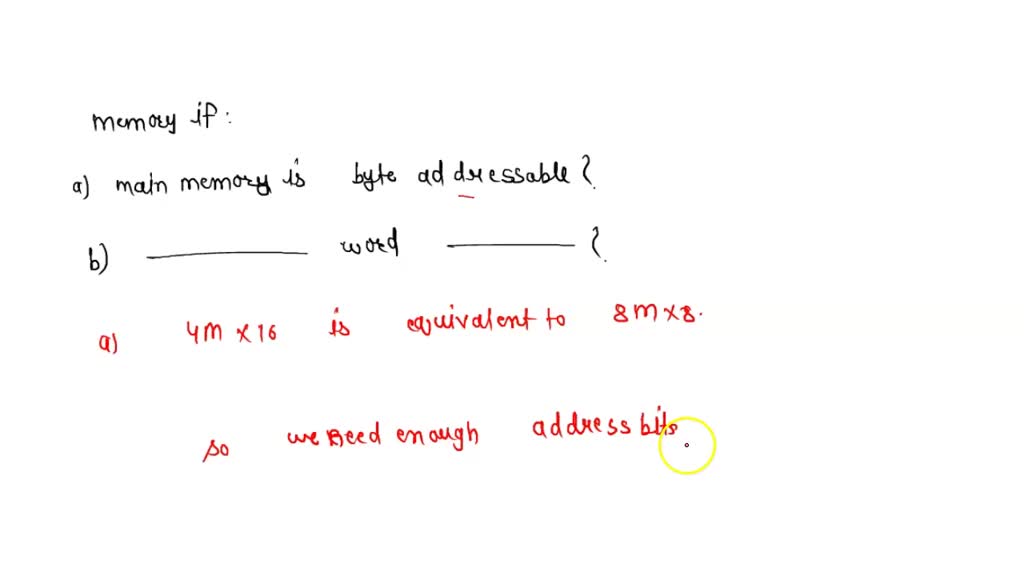 memory if:
a) main memory is byte addressable?
b) word ?
a) 4M x 16 is equivalent to 8M x 8.
so we need enough address bits